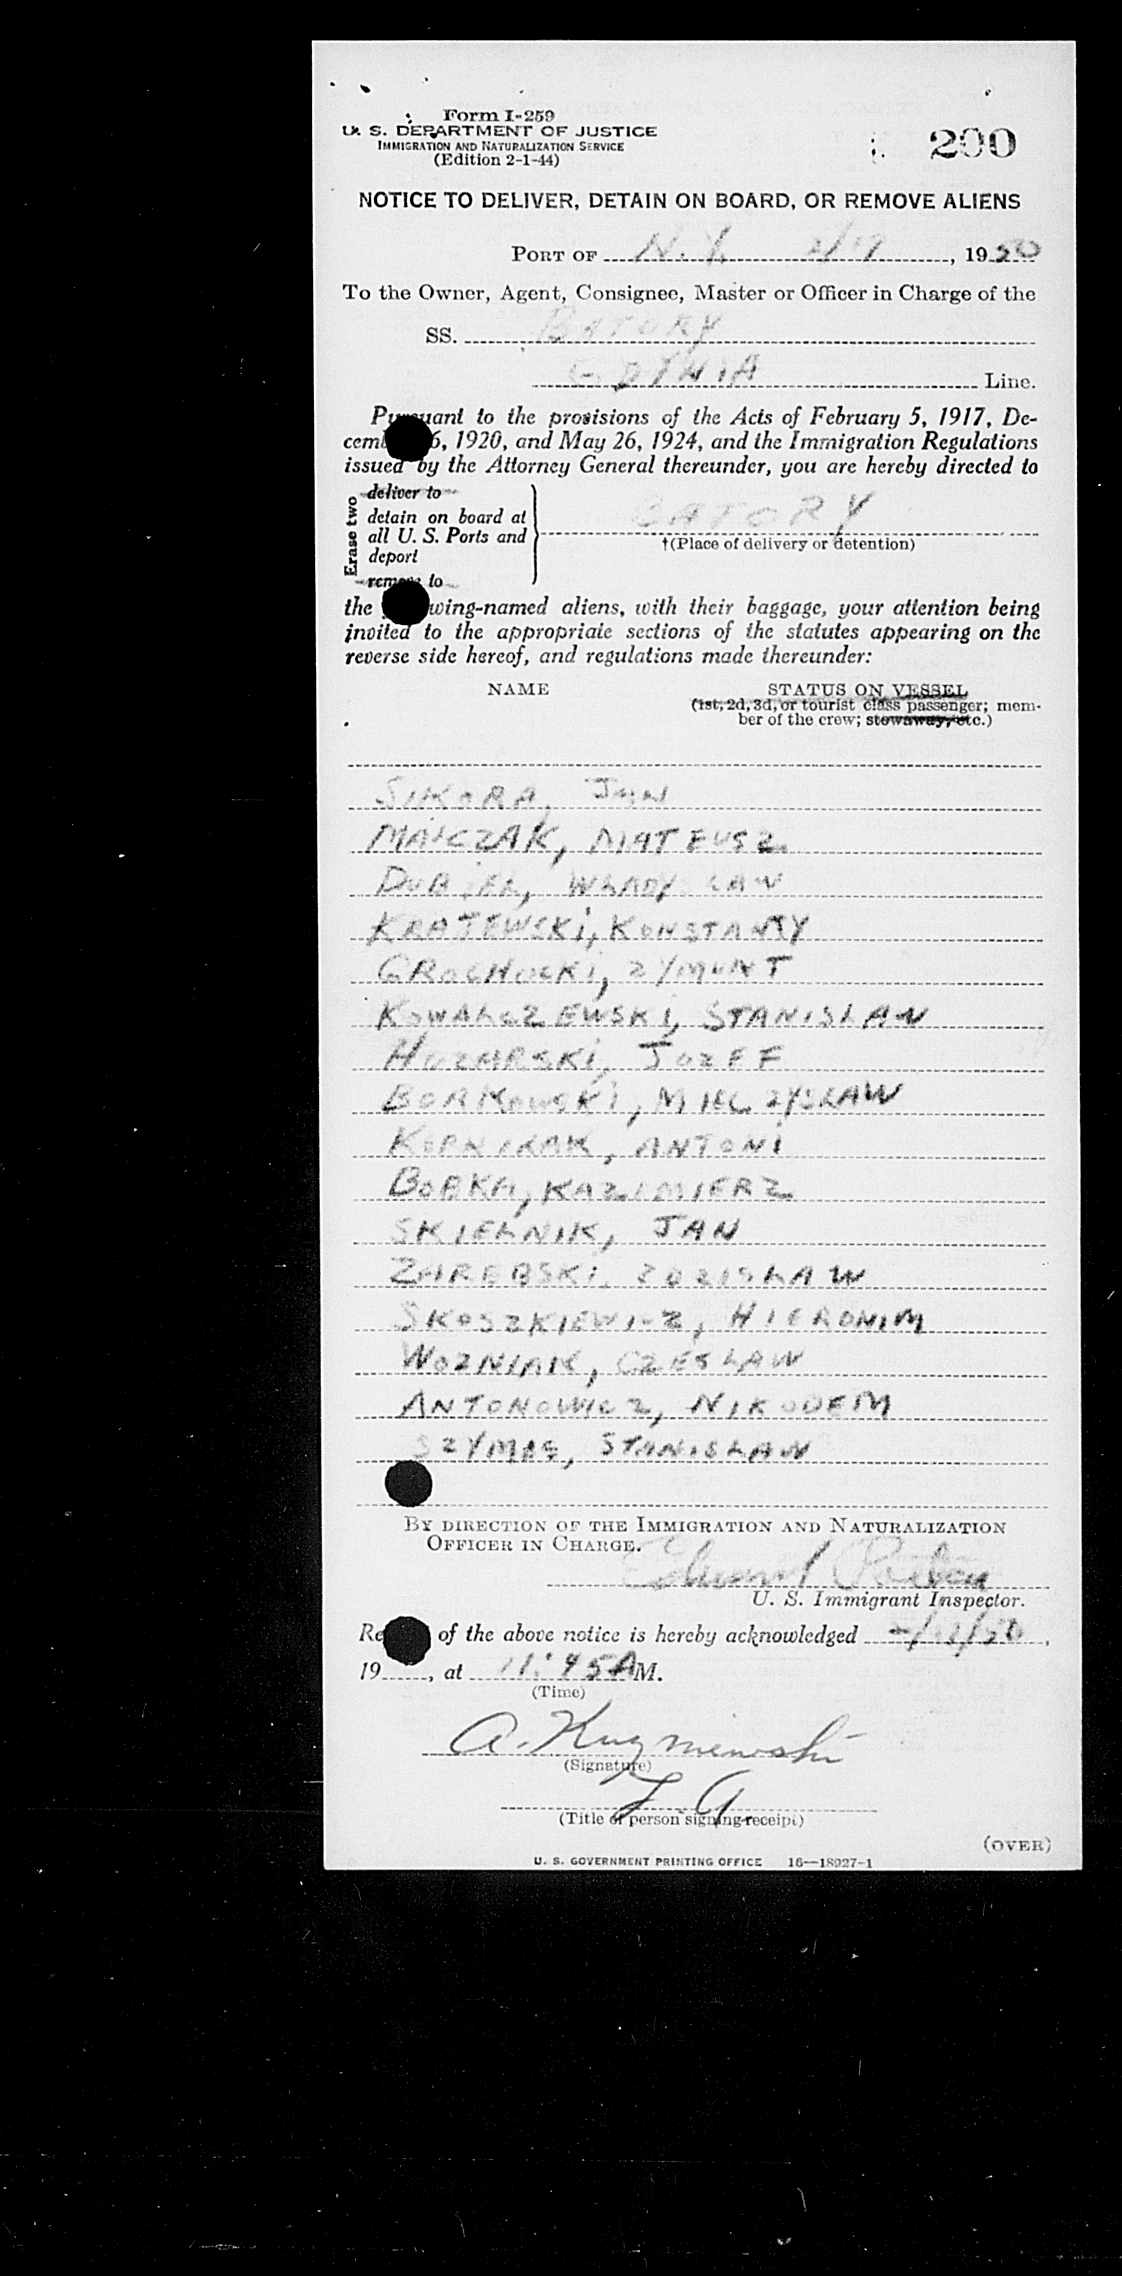 Form I-259
U. S. DEPARTMENT OF JUSTICE
IMMIGRATION AND NATURALIZATION SERVICE
(Edition 2-1-44)
200
NOTICE TO DELIVER, DETAIN ON BOARD, OR REMOVE ALIENS
PORT OF N. Y. , 1950
To the Owner, Agent, Consignee, Master or Officer in Charge of the
SS. BATORY
GDYNIA Line.
Pursuant to the provisions of the Acts of February 5, 1917, De-
cem 6, 1920, and May 26, 1924, and the Immigration Regulations
issued by the Attorney General thereunder, you are hereby directed to
Erase two
deliver to
detain on board at
all U. S. Ports and
deport
remove to
BATORY
†(Place of delivery or detention)
the wing-named aliens, with their baggage, your attention being
invited to the appropriate sections of the statutes appearing on the
reverse side hereof, and regulations made thereunder:
NAME STATUS ON VESSEL
(1st, 2d, 3d, or tourist class passenger; mem-
ber of the crew; stowaway, etc.)
SIKORA, JAN
MAICZAK, MATEUSZ
DUBIEL, WLADYSLAW
KRAJEWSKI, KONSTANTY
GROCHOCKI, ZYMUNT
KOWALCZEWSKI, STANISLAW
HUZARSKI, JOZEF
BORKOWSKI, MIECZYSLAW
ANTONI
BOBKA, KAZIMIERZ
SKIELNIK, JAN
ZAREBSKI, ZDZISLAW
SKOSZKIEWICZ, HIERONIM
WOZNIAK, CZESLAW
ANTONOWICZ, NIKODEM
STANISLAW
BY DIRECTION OF THE IMMIGRATION AND NATURALIZATION
OFFICER IN CHARGE.
Edward
U. S. Immigrant Inspector.
Re of the above notice is hereby acknowledged ,
19 , at 11:45 A M.
(Time)
A. Kuzmiewski
(Signature)
(Title of person signing receipt)
(OVER)
U. S. GOVERNMENT PRINTING OFFICE 16—18027-1